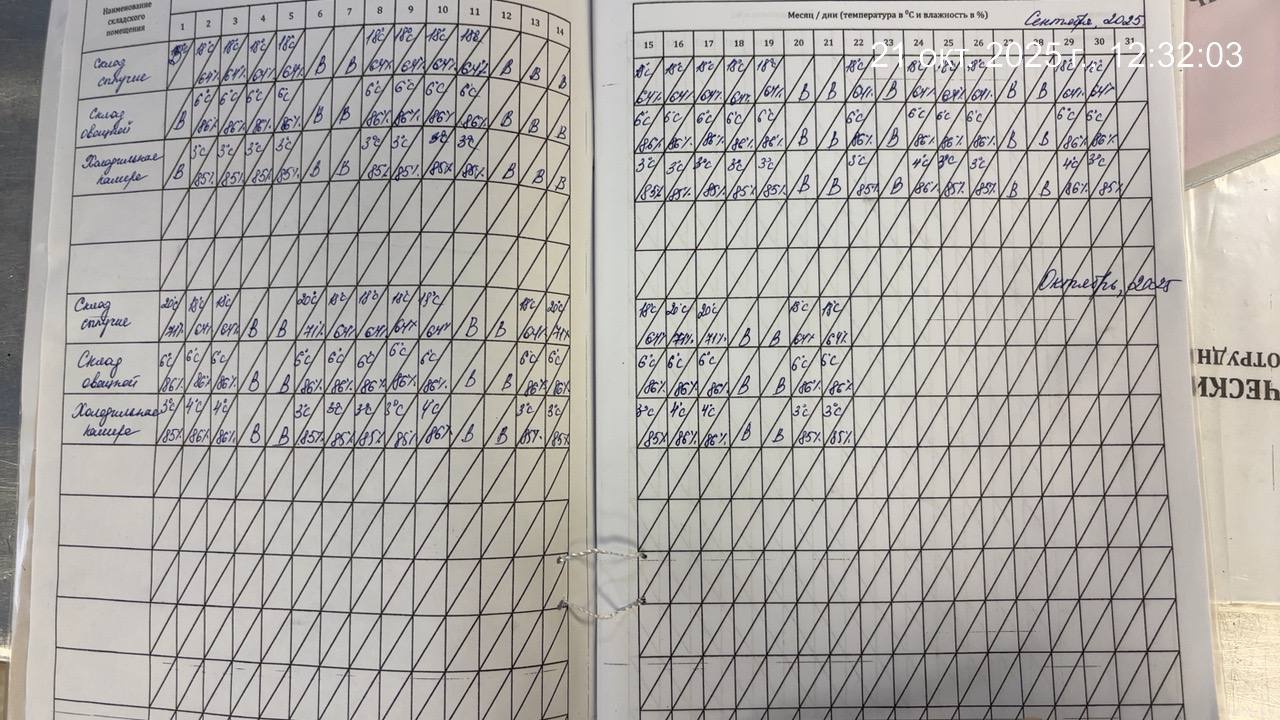 Наименование
складского
помещения
1 2 3 4 5 6 7 8 9 10 11 12 13 14
Склад сыпучие
18°C 18°C 18°C 18°C В В 18°C 18°C 18°C 18°C В В В
64% 64% 64% 64% 64% 64% 64% 64%
Склад овощной
В 6°C 6°C 6°C 6°C В В 6°C 6°C 6°C 6°C В В В
86% 86% 86% 86% 86% 86% 86% 86%
Холодильные камере
В 3°C 3°C 3°C 3°C В В 3°C 3°C 3°C 3°C В В В
85% 85% 85% 85% 85% 85% 85% 85%
Склад сыпучие
20°C 18°C 18°C В В 20°C 18°C 18°C 18°C 18°C В В 18°C 20°C
71% 64% 64% 71% 64% 64% 64% 64% 64% 71%
Склад овощной
6°C 6°C 6°C В В 6°C 6°C 6°C 6°C 6°C В В 6°C 6°C
86% 86% 86% 86% 86% 86% 86% 86% 86% 86%
Холодильные камере
3°C 4°C 4°C В В 3°C 3°C 3°C 3°C 4°C В В 3°C 3°C
85% 86% 86% 85% 85% 85% 85% 86% 85% 85%
Месяц / дни (температура в °С и влажность в %)
Сентябрь, 2025
15 16 17 18 19 20 21 22 23 24 25 26 27 28 29 30 31
21 окт. 2025 г. 12:32:03
18°C 18°C 18°C 18°C 18°C В В 18°C В 18°C 18°C 18°C В В 18°C 18°C
64% 64% 64% 64% 64% 64% 64% 64% 64% 64% 64%
6°C 6°C 6°C 6°C 6°C В В 6°C В 6°C 6°C 6°C В В 6°C 6°C
86% 86% 86% 86% 86% 86% 86% 86% 86% 86% 86%
3°C 3°C 3°C 3°C 3°C В В 3°C В 4°C 3°C 3°C В В 4°C 3°C
85% 85% 85% 85% 85% 85% 86% 85% 85% 86% 85%
Октябрь, 2025
18°C 20°C 20°C В В 18°C 18°C
64% 71% 71% 64% 64%
6°C 6°C 6°C В В 6°C 6°C
86% 86% 86% 86% 86%
3°C 4°C 4°C В В 3°C 3°C
85% 86% 86% 85% 85%